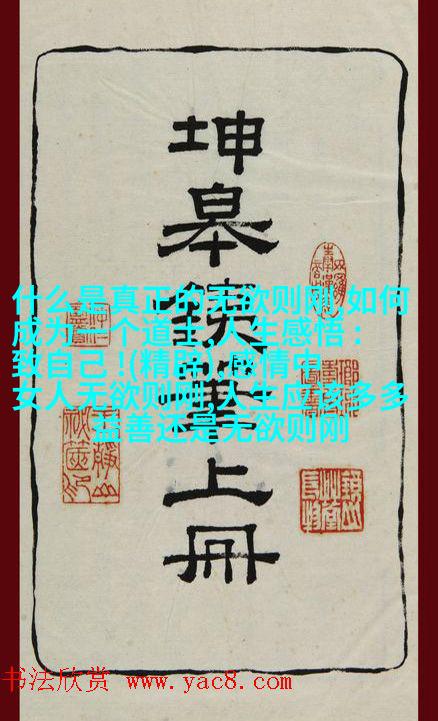 坤皋鐵筆上冊
什么是真正的无欲则刚,如何
成为一个道士,人生感悟 :
致自己 !(精辟),感情中
女人无欲则刚,人生应该多多
益善还是无欲则刚
书法欣赏 www.yac8.com